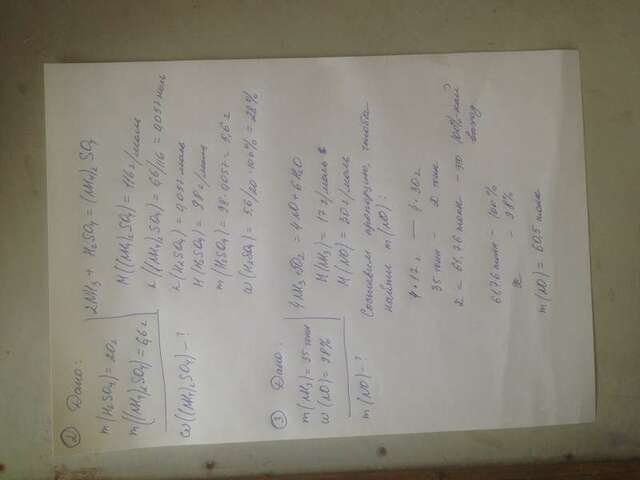 ② Дано:
m(H₂SO₄) = 20г
m((NH₄)₂SO₄) = 6,6 г
ω((NH₄)₂SO₄) - ?
2NH₃ + H₂SO₄ = (NH₄)₂SO₄
M((NH₄)₂SO₄) = 116 г/моль
n((NH₄)₂SO₄) = 6,6/116 = 0,057 моль
n(H₂SO₄) = 0,057 моль
M(H₂SO₄) = 98 г/моль
m(H₂SO₄) = 98·0,057 = 5,6 г
ω(H₂SO₄) = 5,6/20 · 100% = 28%
③ Дано:
m(NH₃) = 35 тонн
ω(NO) = 98%
m(NO) - ?
4NH₃ + 5O₂ = 4NO + 6H₂O
M(NH₃) = 17 г/моль
M(NO) = 30 г/моль
Составим пропорцию, чтобы
найти m(NO):
4·17 г — 4·30 г
35 тонн - x тонн
x = 61,76 тонн - это 100%-ный
выход
61,76 тонн - 100%
x - 98%
m(NO) = 60,5 тонн